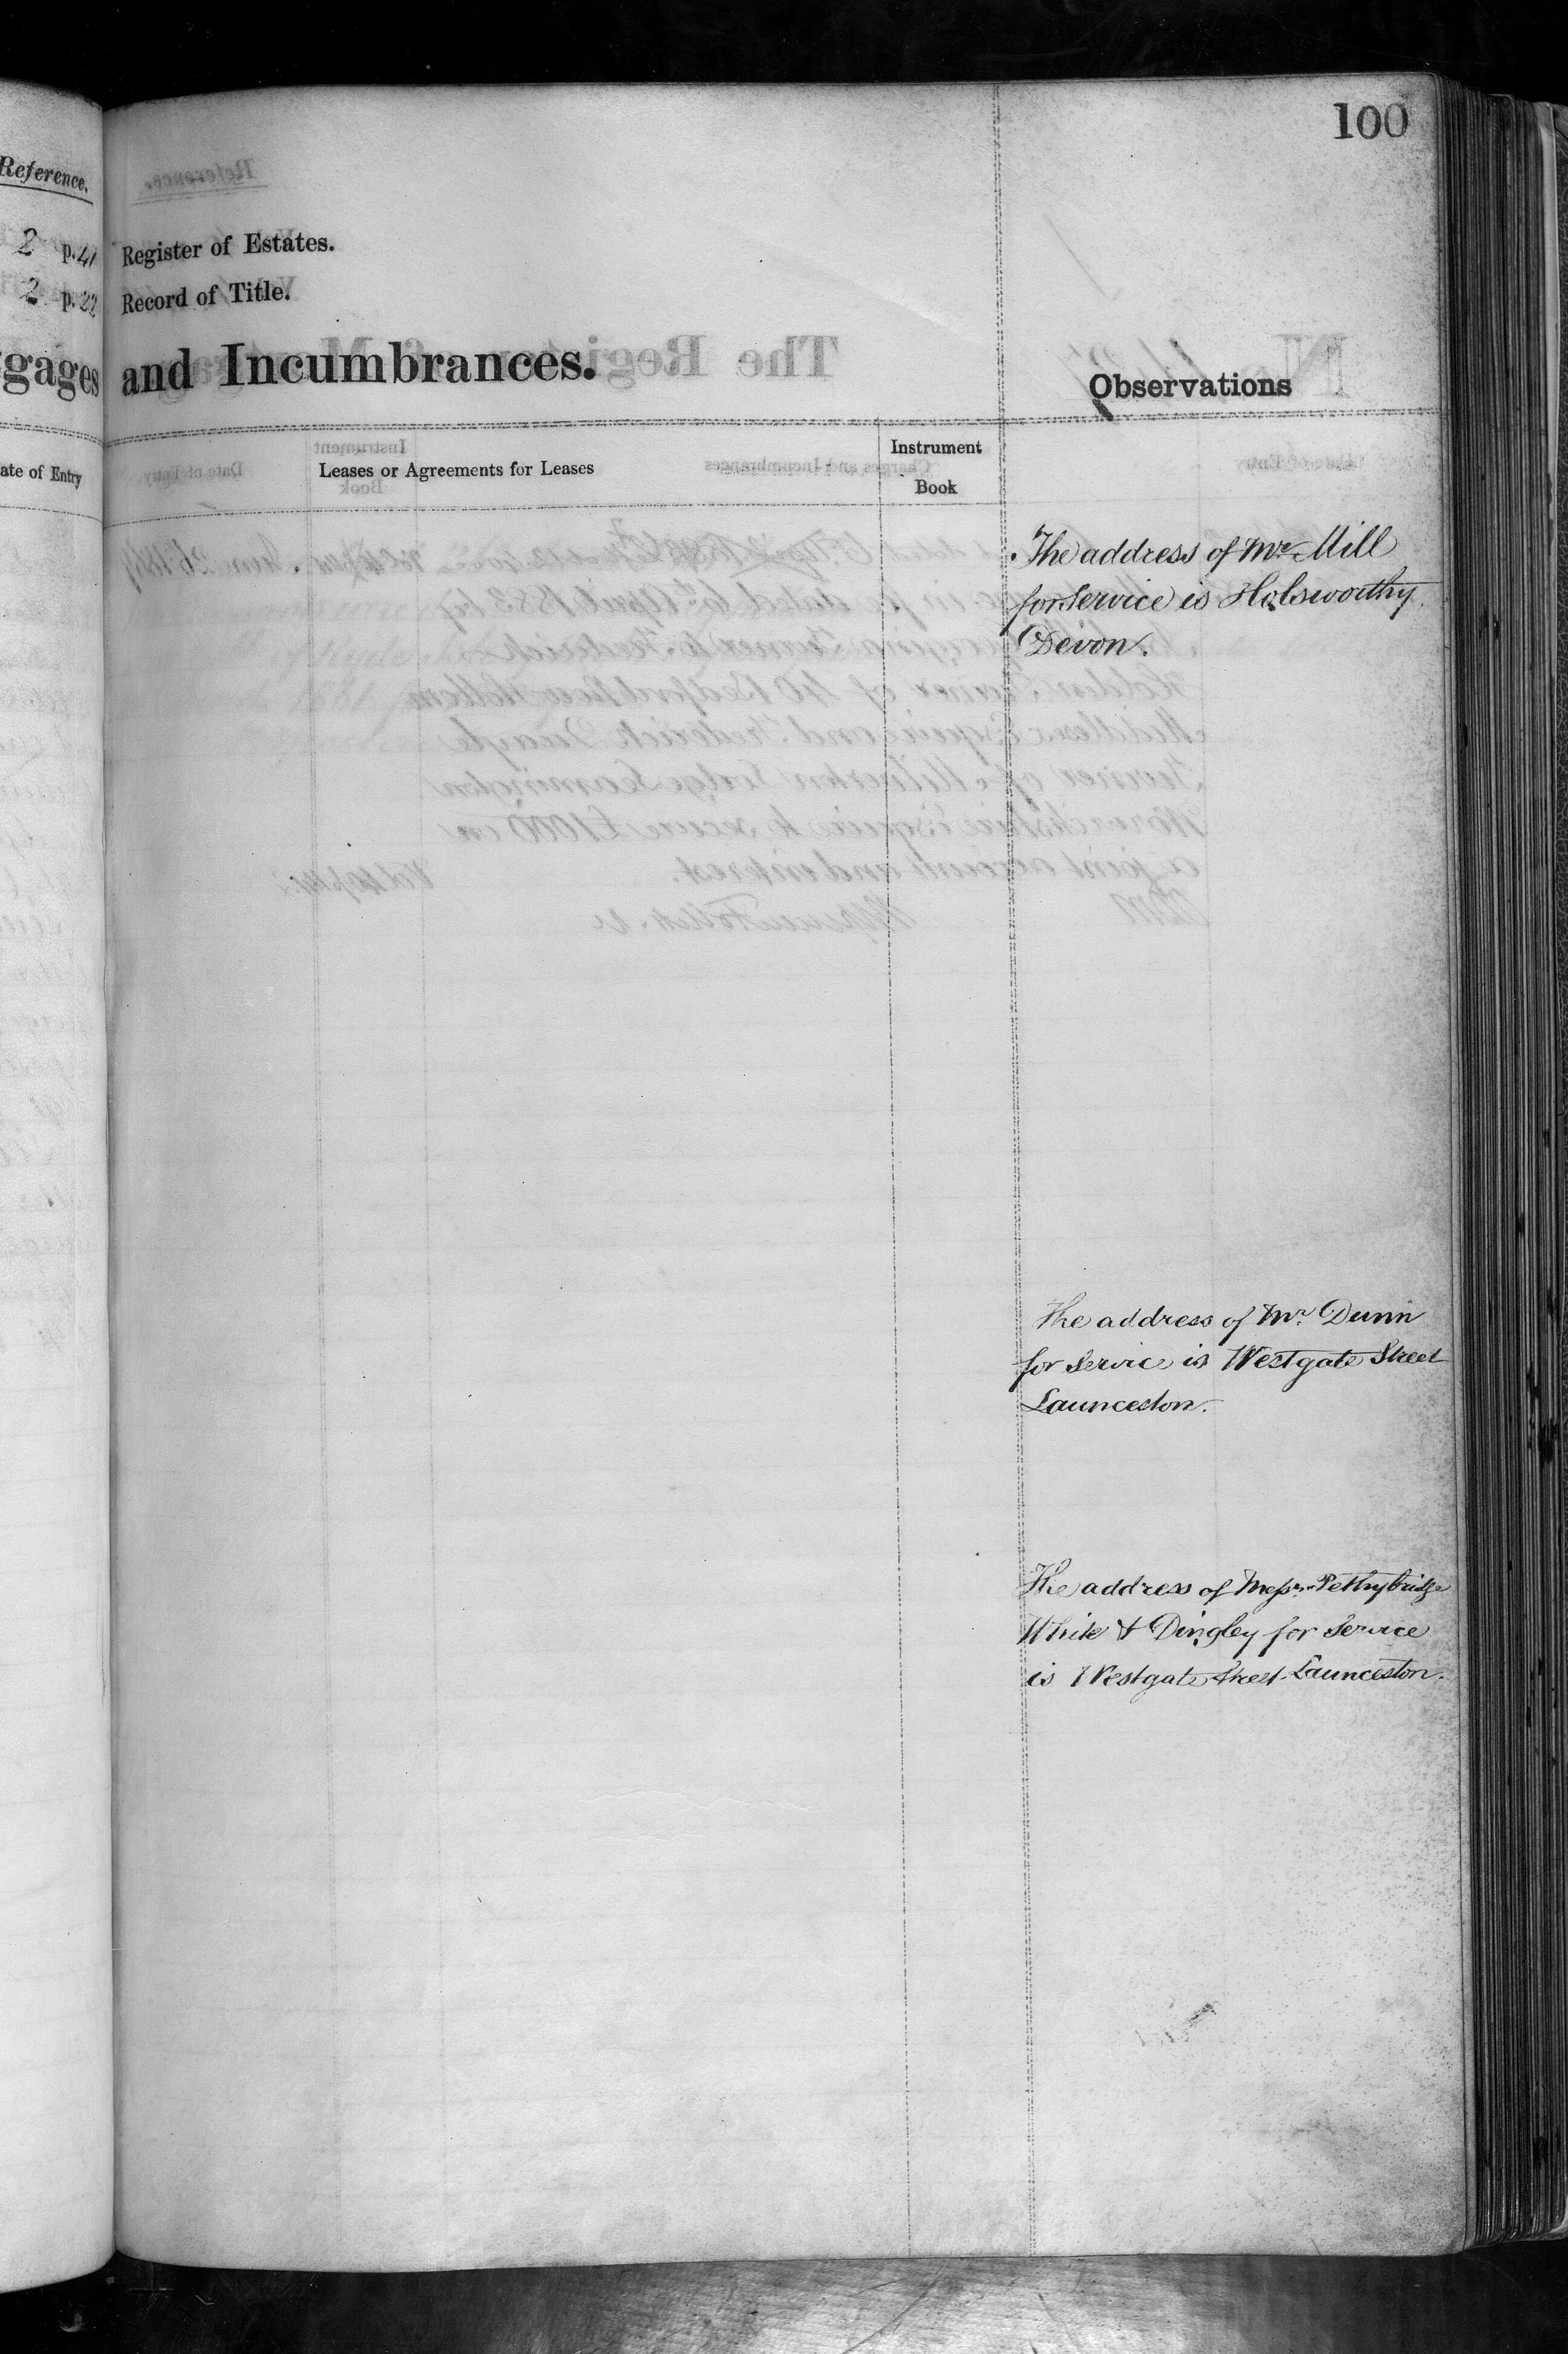 100
Reference.
2 p.41 Register of Estates.
2 p.22 Record of Title.
gages and Incumbrances.
Observations
ate of Entry
Leases or Agreements for Leases
Instrument
Book
The address of Mr. Mill
for Service is Holsworthy
Devon.
The address of Mr. Dunn
for Service is Westgate Street
Launceston.
The address of Messrs. Pethybridge
White & Dingley for Service
is Westgate Street Launceston.